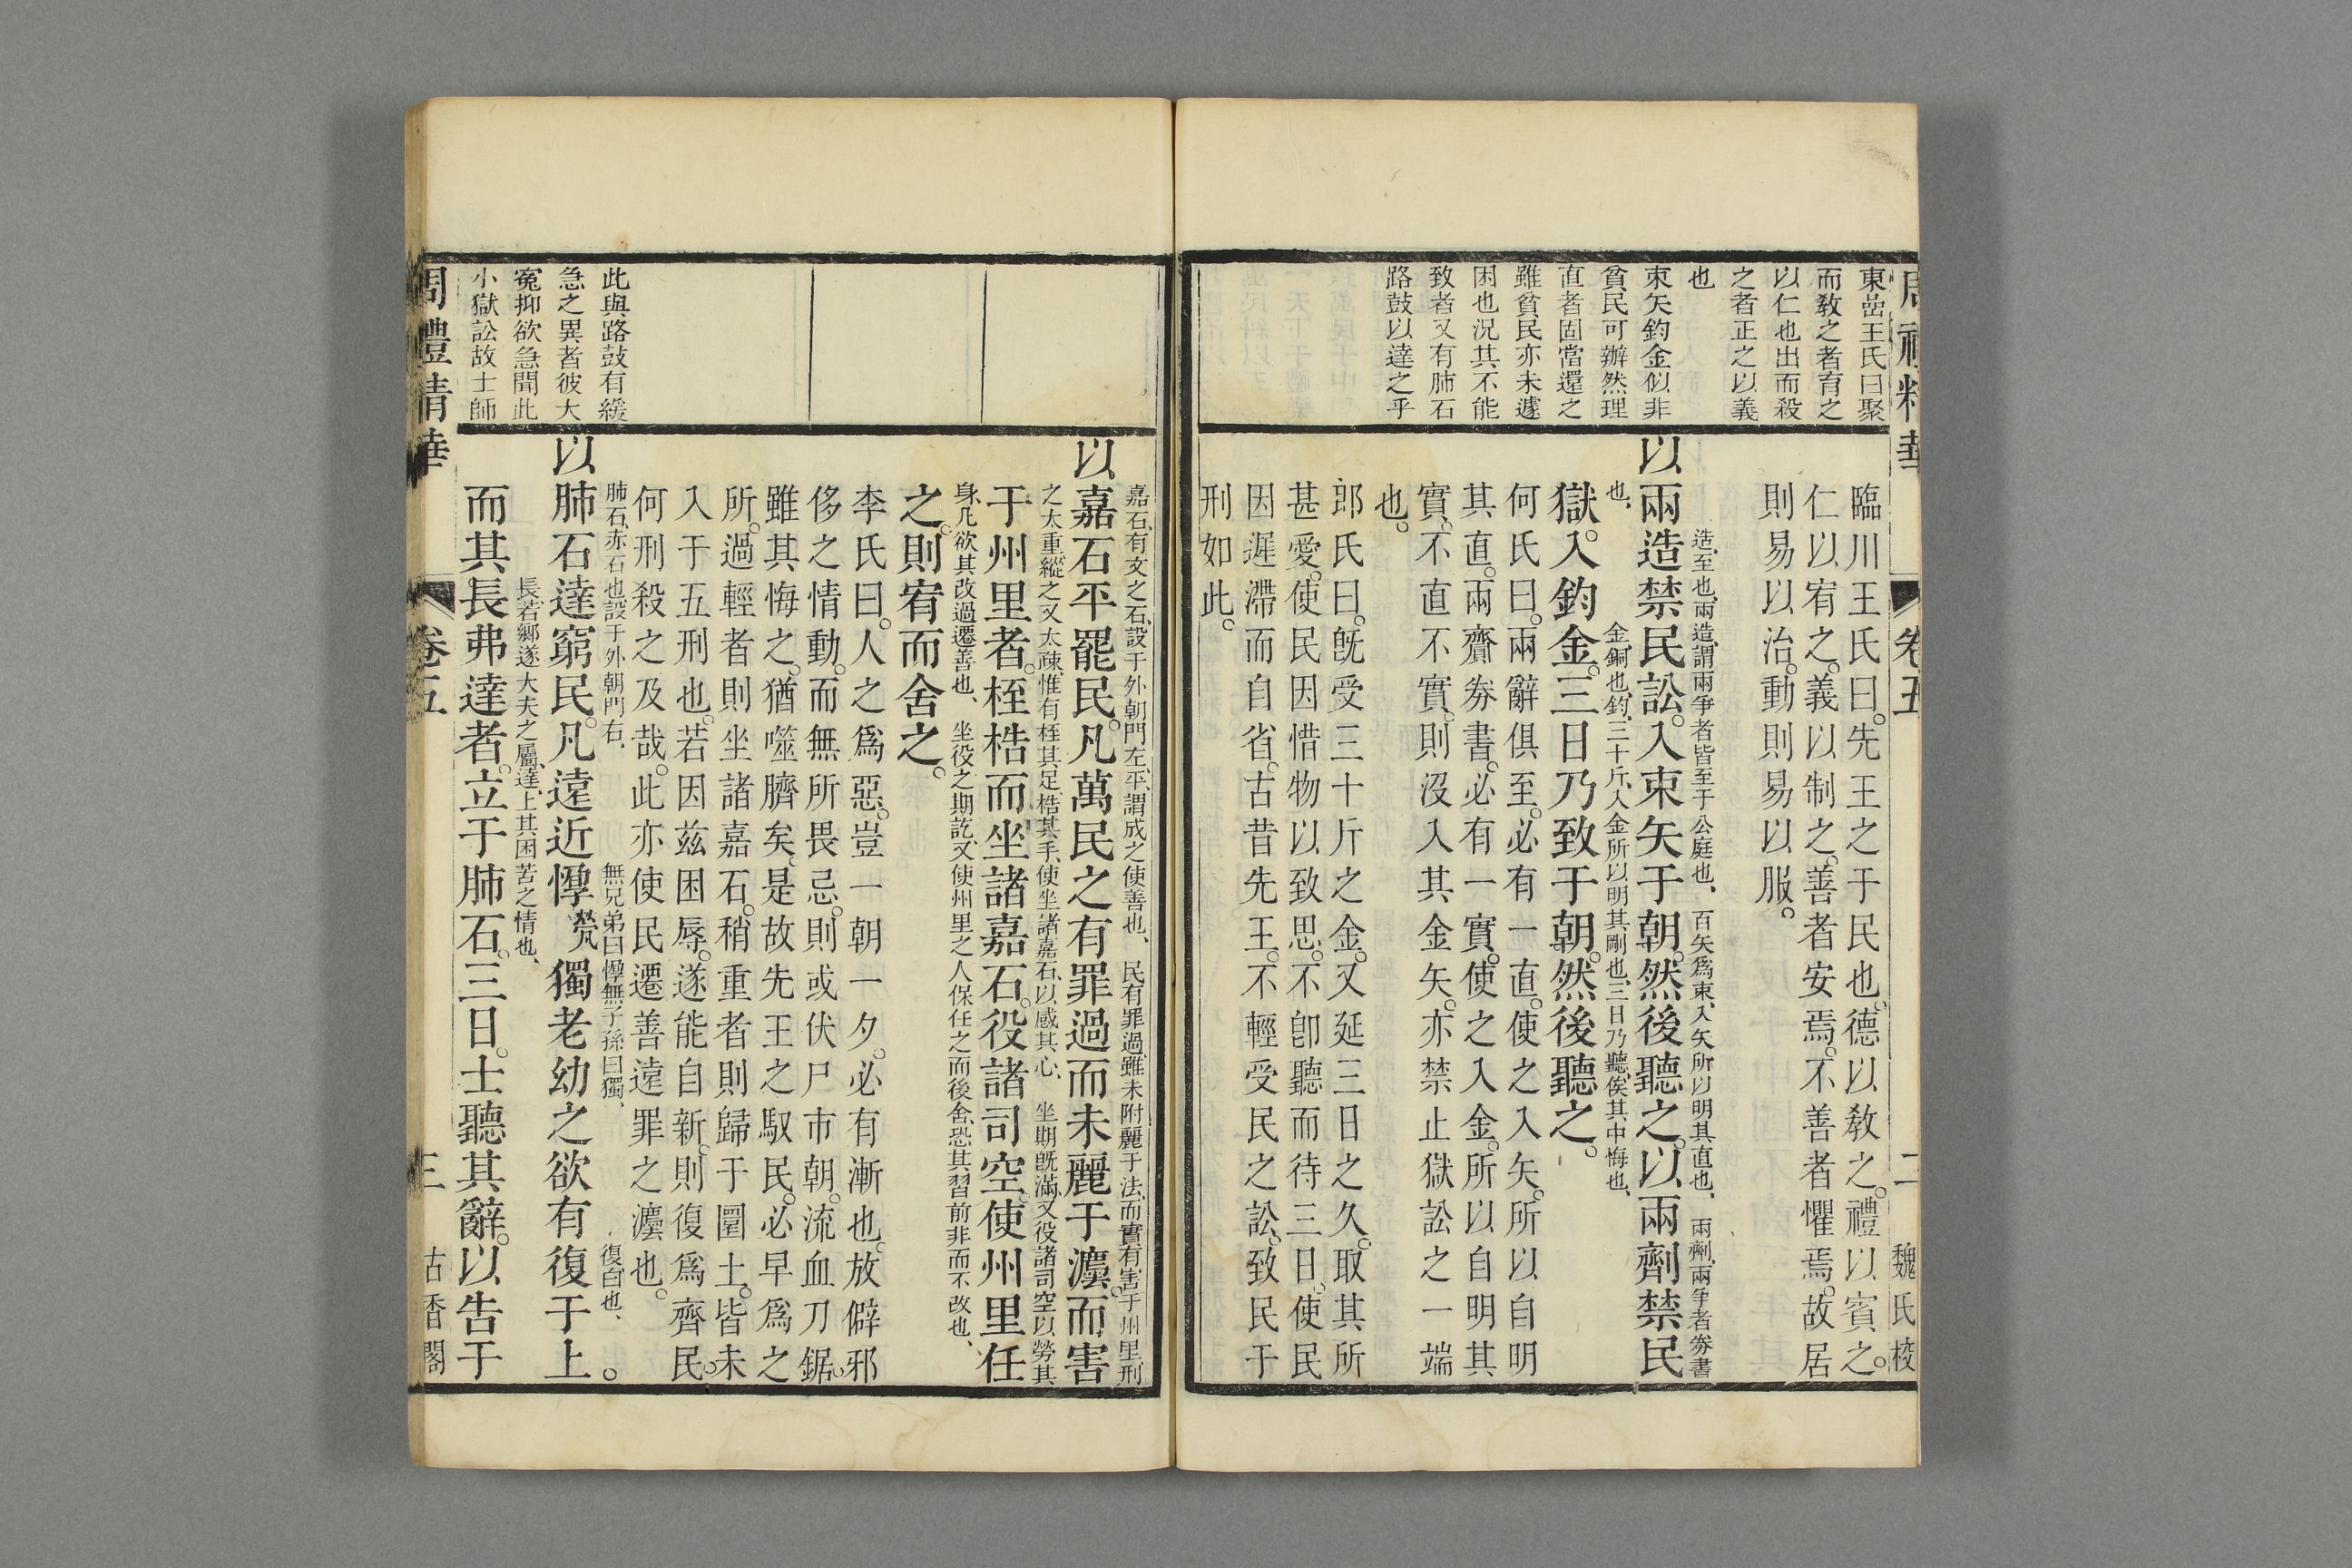 周禮精華
卷五
二
魏氏校
東嵒王氏曰聚
而敎之者育之
以仁也出而殺
之者正之以義
也
束矢鈞金似非
貧民可辦然理
直者固當還之
雖貧民亦未遽
困也况其不能
致者又有肺石
路鼓以達之乎
臨川王氏曰。先王之于民也。德以敎之。禮以賓之。
仁以宥之。義以制之。善者安焉。不善者懼焉。故居
則易以治。動則易以服。
造、至也、兩造、謂兩爭者皆至于公庭也、百矢爲束、入矢所以明其直也、兩劑、兩爭者劵書
以兩造禁民訟。入束矢于朝。然後聽之。以兩劑禁民
也、金、銅也、鈞、三十斤、入金所以明其剛也、三日乃聽、俟其中悔也、
獄。入鈞金。三日乃致于朝。然後聽之。
何氏曰。兩辭俱至。必有一直。使之入矢。所以自明
其直。兩齎劵書。必有一實。使之入金。所以自明其
實。不直不實。則沒入其金矢。亦禁止獄訟之一端
也。
郎氏曰。旣受三十斤之金。又延三日之久。取其所
甚愛。使民因惜物以致思。不卽聽而待三日。使民
因遲滯而自省。古昔先王。不輕受民之訟。致民于
刑如此。
此與路鼓有緩
急之異者彼大
寃抑欲急聞此
小獄訟故士師
嘉石、有文之石、設于外朝門左、平、謂成之使善也、民有罪過、雖未附麗于法、而實有害于州里、刑
以嘉石平罷民。凡萬民之有罪過而未麗于灋。而害
之太重、縱之又太疎、惟有桎其足、梏其手、使坐諸嘉石、以感其心、坐期旣滿、又役諸司空以勞其
于州里者。桎梏而坐諸嘉石。役諸司空。使州里任
身、凡欲其改過遷善也、坐役之期訖、又使州里之人保任之而後舍、恐其習前非而不改也、
之。則宥而舍之。
李氏曰。人之爲惡。豈一朝一夕。必有漸也。放僻邪
侈之情動。而無所畏忌。則或伏尸市朝。流血刀鋸。
雖其悔之。猶噬臍矣。是故先王之馭民。必早爲之
所。過輕者則坐諸嘉石。稍重者則歸于圜土。皆未
入于五刑也。若因兹困辱。遂能自新。則復爲齊民。
何刑殺之及哉。此亦使民遷善遠罪之灋也。
肺石、赤石也、設于外朝門右、無兄弟曰惸、無子孫曰獨、復、白也、
以肺石達窮民。凡遠近惸煢獨老幼之欲有復于上。
長、若鄉遂大夫之屬、達、上其困苦之情也、
而其長弗達者。立于肺石。三日。士聽其辭。以告于
周禮精華
卷五
三
古香閣